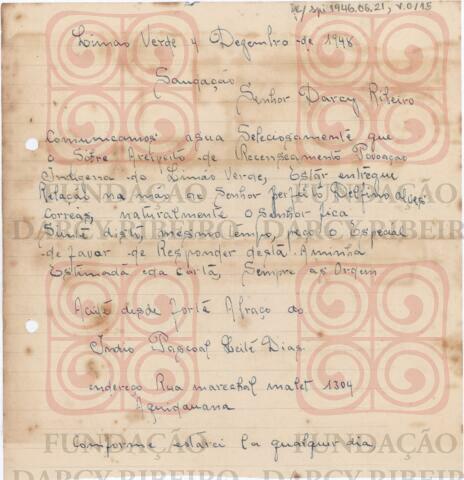 Limão Verde 4 Dezembro de 1948
Saugação
Senhor Darcy Ribeiro
Comunicamos asua Seleciosamente que
o Sôfre Areipcito de Recenseamento Povoação
Indigena do Limão Verde, Estar entregue
Relação na mão de Senhor perfeito, Delfino
Correas, naturalmente o senhor fica
mesmo tempo, peço o Especial
de favor de Responder desta Aminha
Estimada cda carta, Sempre as Ordem
Aceite desde forte Afraço do
Indio Pascoal Leite Dias
endereço Rua marechal malet 1304
Aquidauana
Comforme estarei la qualquer dia
FUNDAÇÃO
DARCY RIBEIRO
FUNDAÇÃO
DARCY RIBEIRO